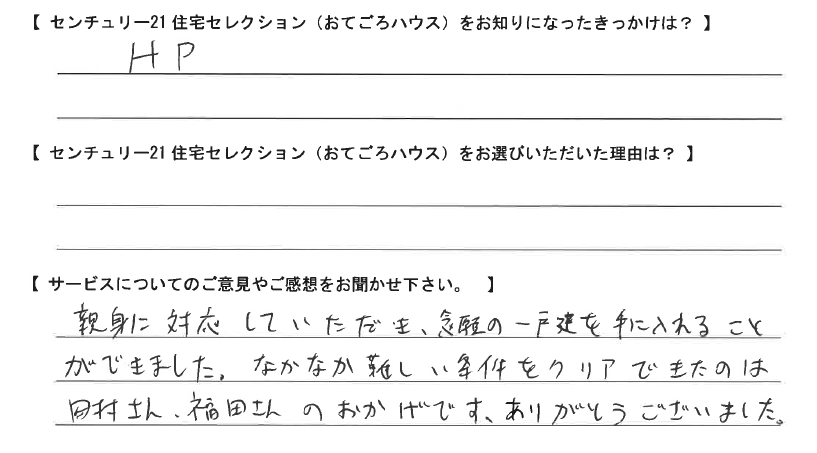 【 センチュリー21 住宅セレクション（おてごろハウス）をお知りになったきっかけは？ 】
HP
【 センチュリー21 住宅セレクション（おてごろハウス）をお選びいただいた理由は？ 】
【 サービスについてのご意見やご感想をお聞かせ下さい。 】
親身に対応していただき、念願の一戸建を手に入れること
ができました。なかなか難しい条件をクリアできたのは
田村さん、福田さんのおかげです、ありがとうございました。